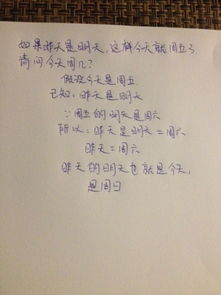 如果昨天是明天,这样今天就周五了
请问今天周几?
假设今天是周五
已知:昨天是明天
∵周五的明天是周六
所以:昨天是明天=周六
昨天=周六
昨天的明天也就是今天,
是周日